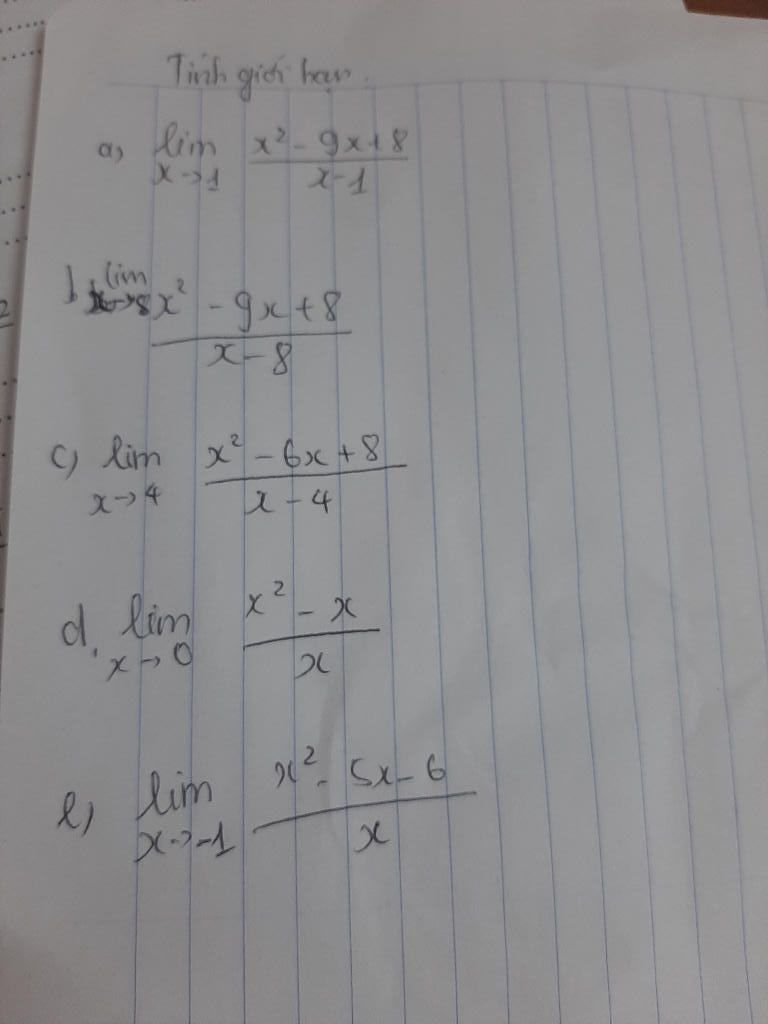 Tính giới hạn.
a) lim x→1 (x² - 9x + 8)/(x - 1)
b, lim x→8 (x² - 9x + 8)/(x - 8)
c) lim x→4 (x² - 6x + 8)/(x - 4)
d. lim x→0 (x² - x)/x
e) lim x→-1 (x² - 5x - 6)/x